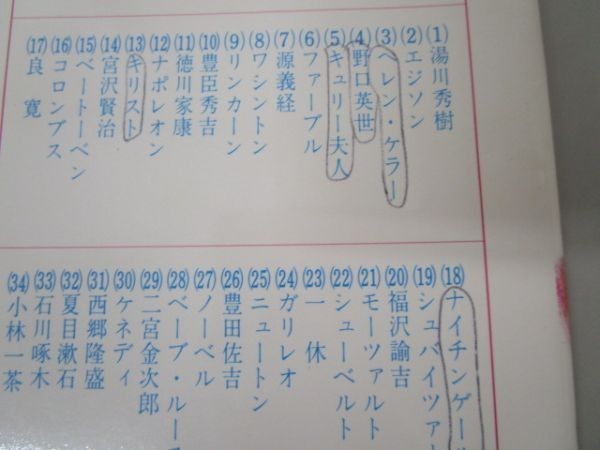 (1)湯川秀樹
(2)エジソン
(3)ヘレン・ケラー
(4)野口英世
(5)キュリー夫人
(6)ファーブル
(7)源義経
(8)ワシントン
(9)リンカーン
(10)豊臣秀吉
(11)徳川家康
(12)ナポレオン
(13)キリスト
(14)宮沢賢治
(15)ベートーベン
(16)コロンブス
(17)良寛
(18)ナイチンゲー
(19)シュバイツァ
(20)福沢諭吉
(21)モーツァルト
(22)シューベルト
(23)一休
(24)ガリレオ
(25)ニュートン
(26)豊田佐吉
(27)ノーベル
(28)ベーブ・ルー
(29)二宮金次郎
(30)ケネディ
(31)西郷隆盛
(32)夏目漱石
(33)石川啄木
(34)小林一茶